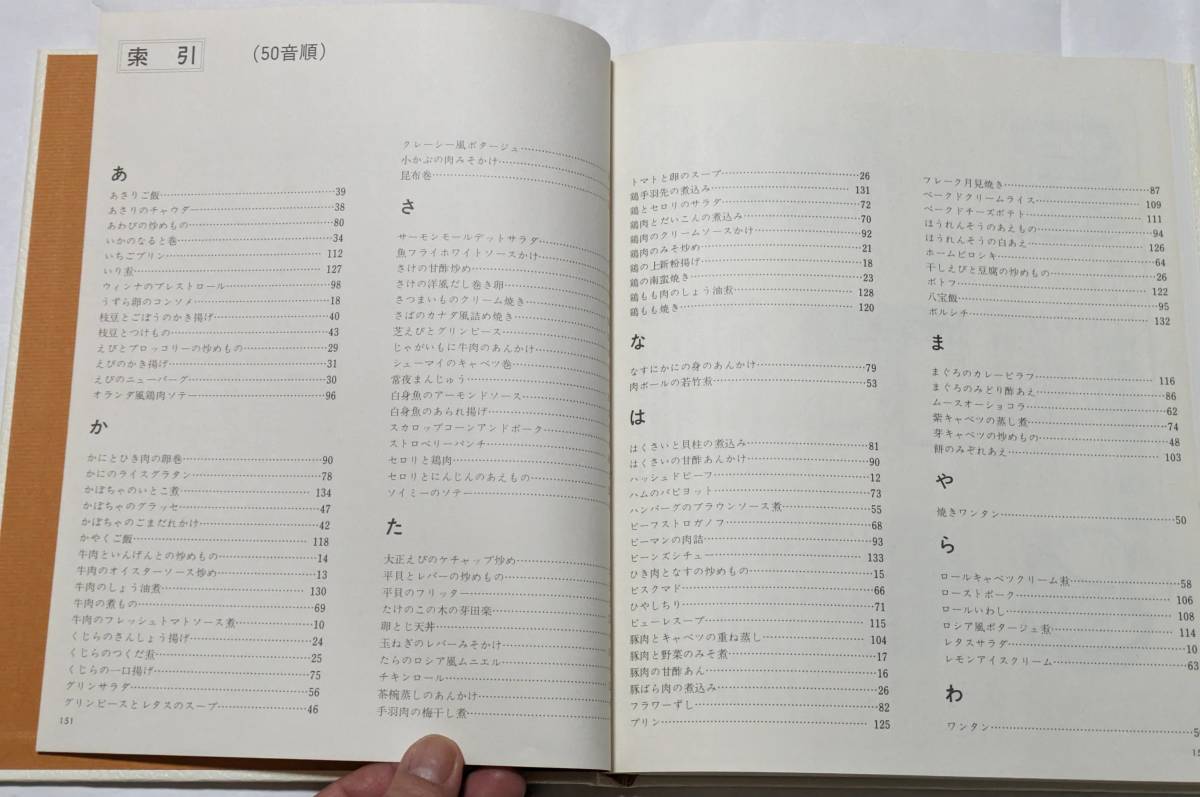 索引 (50音順)
あ
あさりご飯 39
あさりのチャウダ 38
あわびの炒めもの 80
いかのなると巻 34
いちごプリン 112
いり煮 127
ウィンナのブレストロール 98
うずら卵のコンソメ 18
枝豆とごぼうのかき揚げ 40
枝豆とつけもの 43
えびとブロッコリーの炒めもの 29
えびのかき揚げ 31
えびのニューバーグ 30
オランダ風鶏肉ソテー 96
か
かにとひき肉の卵巻 90
かにのライスグラタン 78
かぼちゃのいとこ煮 134
かぼちゃのグラッセ 47
かぼちゃのごまだれかけ 42
かやくご飯 118
牛肉といんげんとの炒めもの 14
牛肉のオイスターソース炒め 13
牛肉のしょう油煮 130
牛肉の煮もの 69
牛肉のフレッシュトマトソース煮 10
くじらのさんしょう揚げ 24
くじらのつくだ煮 25
くじらの一口揚げ 75
グリンサラダ 56
グリンピースとレタスのスープ 46
151
クレーシー風ポタージュ
小かぶの肉みそかけ
昆布巻
さ
サーモンモールデットサラダ
魚フライホワイトソースかけ
さけの甘酢炒め
さけの洋風だし巻き卵
さつまいものクリーム焼き
さばのカナダ風詰め焼き
芝えびとグリンピース
じゃがいもに牛肉のあんかけ
シューマイのキャベツ巻
常夜まんじゅう
白身魚のアーモンドソース
白身魚のあられ揚げ
スカロップコーンアンドポーク
ストロベリーパンチ
セロリと鶏肉
セロリとにんじんのあえもの
ソイミーのソテー
た
大正えびのケチャップ炒め
平貝とレバーの炒めもの
平貝のフリッター
たけのこの木の芽田楽
卵とじ天丼
玉ねぎのレバーみそかけ
たらのロシア風ムニエル
チキンロール
茶椀蒸しのあんかけ
手羽肉の梅干し煮
トマトと卵のスープ 26
鶏手羽先の煮込み 131
鶏とセロリのサラダ 72
鶏肉とだいこんの煮込み 70
鶏肉のクリームソースかけ 92
鶏肉のみそ炒め 21
鶏の上新粉揚げ 18
鶏の南蛮焼き 23
鶏もも肉のしょう油煮 128
鶏もも焼き 120
な
なすにかにの身のあんかけ 79
肉ボールの若竹煮 53
は
はくさいと貝柱の煮込み 81
はくさいの甘酢あんかけ 90
ハッシュドビーフ 12
ハムのパピヨット 73
ハンバーグのブラウンソース煮 55
ビーフストロガノフ 68
ピーマンの肉詰 93
ビーンズシチュー 133
ひき肉となすの炒めもの 15
ビスクマド 66
ひやしちり 71
ピューレスープ 115
豚肉とキャベツの重ね蒸し 104
豚肉と野菜のみそ煮 17
豚肉の甘酢あん 16
豚ばら肉の煮込み 26
フラワーずし 82
プリン 125
フレーク月見焼き 87
ベークドクリームライス 109
ベークドチーズポテト 111
ほうれんそうのあえもの 94
ほうれんそうの白あえ 126
ホームピロシキ 64
干しえびと豆腐の炒めもの 26
ポトフ 122
八宝飯 95
ボルシチ 132
ま
まぐろのカレーピラフ 116
まぐろのみどり酢あえ 86
ムースオーショコラ 62
紫キャベツの蒸し煮 74
芽キャベツの炒めもの 48
餅のみぞれあえ 103
や
焼きワンタン 50
ら
ロールキャベツクリーム煮 58
ローストポーク 106
ロールいわし 108
ロシア風ポタージュ煮 114
レタスサラダ 10
レモンアイスクリーム 63
わ
ワンタン